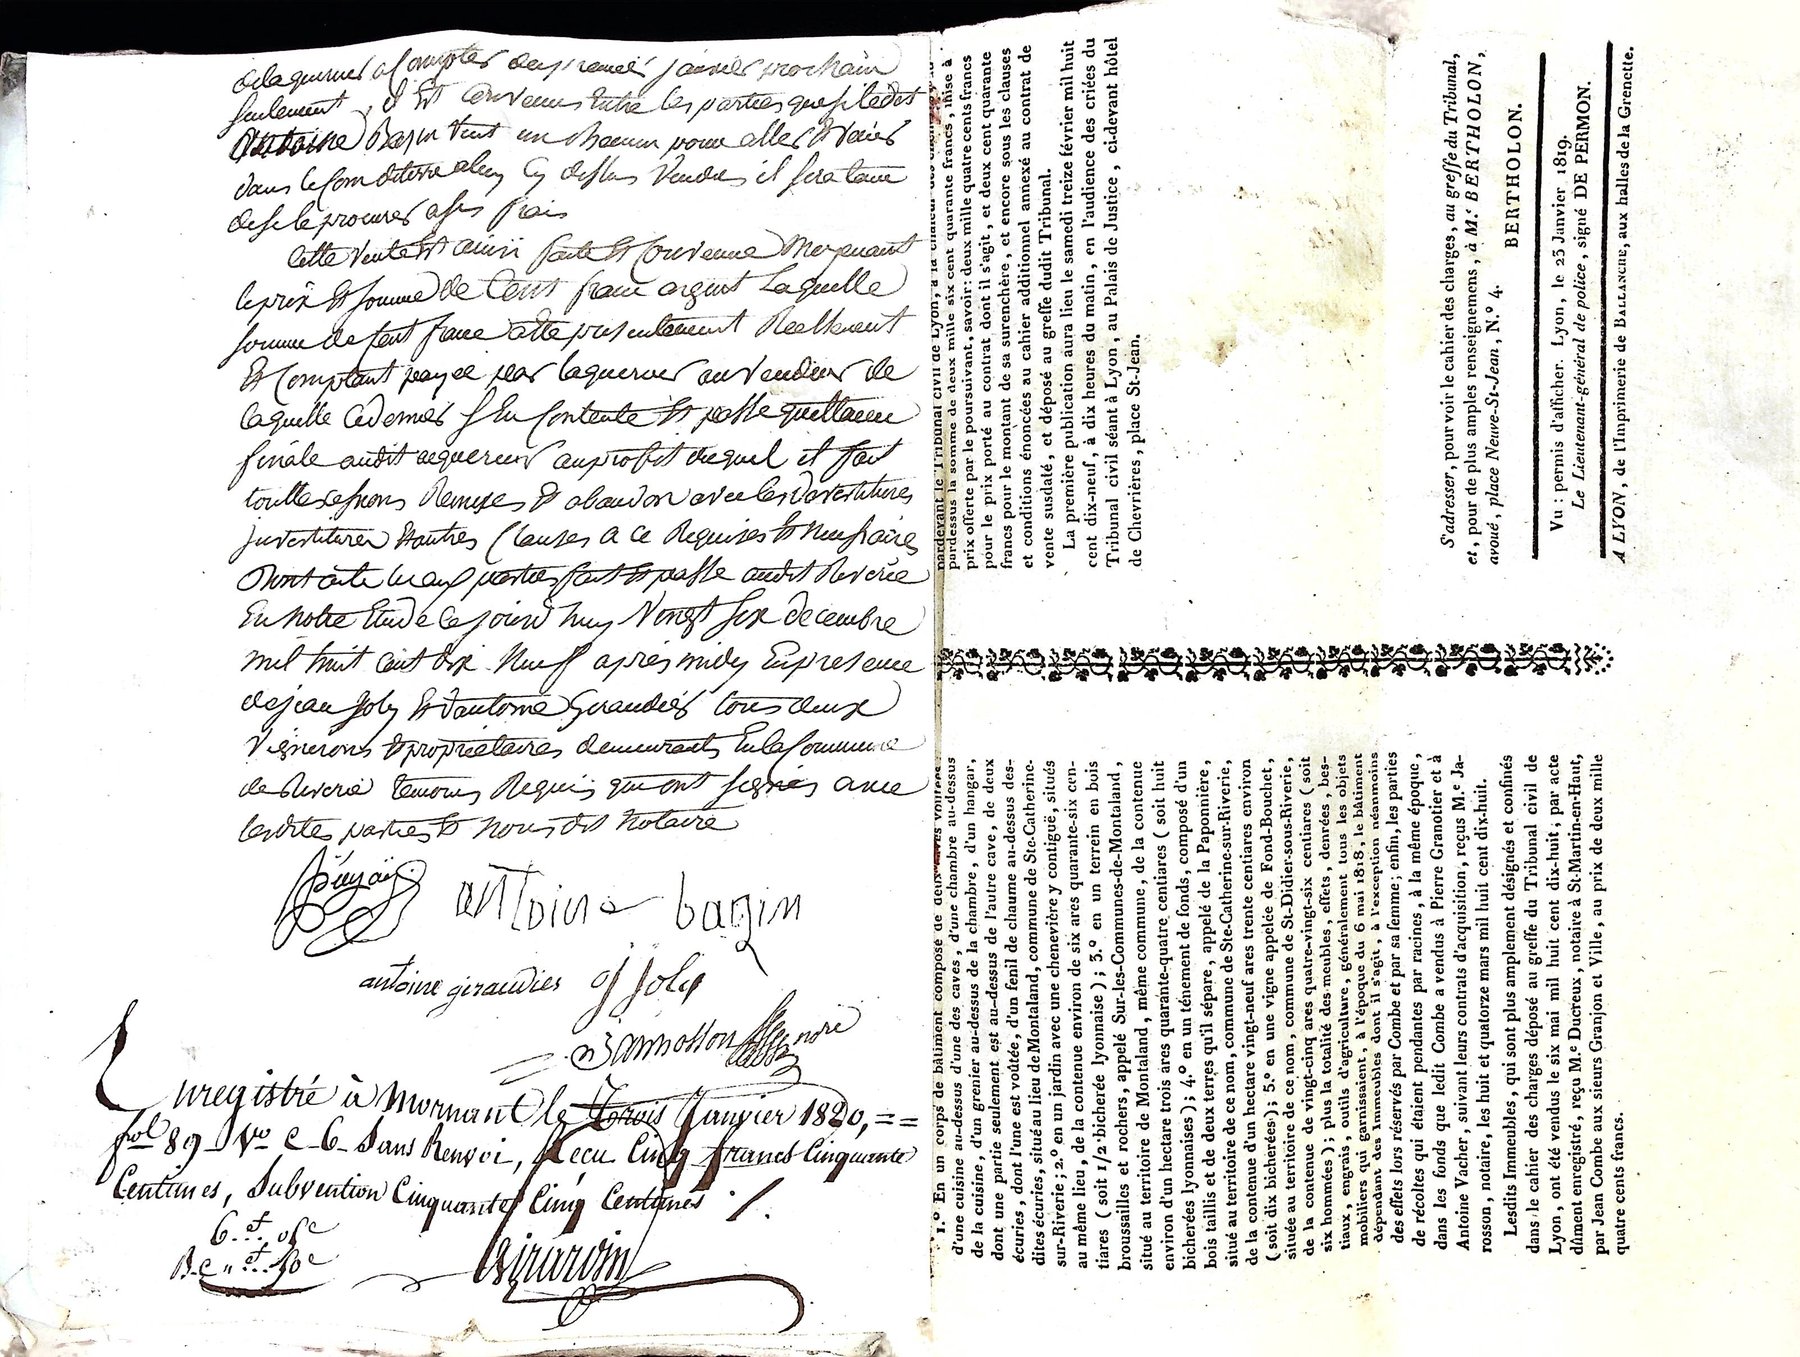 de laquereur a Compter du premier janvier prochain
seulement, il Est Convenus Entre les parties que si ledit
Antoine Bazin veut un chemin pour aller & venir
dans le Com de terre a luy Cy dessus Vendus il sera tenu
de se le procurer a ses frais
Cette vente Est ainsi faite & Convenue Moyenant
le prix & somme de Cent franc argent Laquelle
somme de Cent franc a été presentement Reellement
Et Comptant payee par laquereur au vendeur de
laquelle Ce dernier s En Contente & passe quittance
finale audit aquereur au profit duquel il fait
toutte cessions Remises & abandon avec les devestitures
jnvestitures & autres Clauses a Ce Requises & Necessaires
Dont acte Lu aux parties fait & passé audit Riverie
En Notre Etude Ce jourd huy Vingt six decembre
mil huit Cent dix Neuf après midy En presence
de jean Joly & d'antoine Giraudier tous deux
Vignerons & propriétaires demeurants En la Commune
de Riverie temoins Requis qui ont signés avec
lesdites parties & Nous dit Notaire
antoine bazin
antoine giraudier j joly
nore
Enregistré à Mornant le Trois Janvier 1820, ==
fol 89 Vo C 6 Sans Renvoi, Recu Cinq francs Cinquante
Centimes, Subvention Cinquante Cinq Centimes ./.
6 f. 05c
Girardin
1.º En un corps de bâtiment composé de deux caves voûtées,
d'une cuisine au-dessus d'une des caves, d'une chambre au-dessus
de la cuisine, d'un grenier au-dessus de la chambre, d'un hangar,
dont une partie seulement est au-dessus de l'autre cave, de deux
écuries, dont l'une est voûtée, d'un fenil de chaume au-dessus des-
dites écuries, situé au lieu de Montaland, commune de Ste-Catherine-
sur-Riverie; 2.º en un jardin avec une chenevière y contiguë, situés
au même lieu, de la contenue environ de six ares quarante-six cen-
tiares (soit 1/2 bicherée lyonnaise); 3.º en un terrein en bois
broussailles et rochers, appelé Sur-les-Communes-de-Montaland,
situé au territoire de Montaland, même commune, de la contenue
environ d'un hectare trois ares quarante-quatre centiares (soit huit
bicherées lyonnaises); 4.º en un ténement de fonds, composé d'un
bois taillis et de deux terres qu'il sépare, appelé de la Paponnière,
situé au territoire de ce nom, commune de Ste-Catherine-sur-Riverie,
de la contenue d'un hectare vingt-neuf ares trente centiares environ
(soit dix bicherées); 5.º en une vigne appelée de Fond-Bouchet,
située au territoire de ce nom, commune de St-Didier-sous-Riverie,
de la contenue de vingt-cinq ares quatre-vingt-six centiares (soit
six hommées); plus la totalité des meubles, effets, denrées, bes-
tiaux, engrais, outils d'agriculture, généralement tous les objets
mobiliers qui garnissaient, à l'époque du 6 mai 1818, le bâtiment
dépendant des Immeubles dont il s'agit, à l'exception néanmoins
des effets lors réservés par Combe et par sa femme; enfin, les parties
de récoltes qui étaient pendantes par racines, à la même époque,
dans les fonds que ledit Combe a vendus à Pierre Granotier et à
Antoine Vacher, suivant leurs contrats d'acquisition, reçus M.e Ja-
rosson, notaire, les huit et quatorze mars mil huit cent dix-huit.
Lesdits Immeubles, qui sont plus amplement désignés et confinés
dans le cahier des charges déposé au greffe du Tribunal civil de
Lyon, ont été vendus le six mai mil huit cent dix-huit, par acte
dûment enregistré, reçu M.e Ducreux, notaire à St-Martin-en-Haut,
par Jean Combe aux sieurs Granjon et Ville, au prix de deux mille
quatre cents francs.
pardevant le Tribunal civil de Lyon, à la chaleur des
pardessus la somme de deux mille six cent quarante francs, mise à
prix offerte par le poursuivant, savoir: deux mille quatre cents francs
pour le prix porté au contrat, dont il s'agit, et deux cent quarante
francs pour le montant de sa surenchère, et encore sous les clauses
et conditions énoncées au cahier additionnel annexé au contrat de
vente susdaté, et déposé au greffe dudit Tribunal.
La première publication aura lieu le samedi treize février mil huit
cent dix-neuf, à dix heures du matin, en l'audience des criées du
Tribunal civil séant à Lyon, au Palais de Justice, ci-devant hôtel
de Chevrières, place St-Jean.
S'adresser, pour voir le cahier des charges, au greffe du Tribunal,
et, pour de plus amples renseignemens, à M.e BERTHOLON,
avoué, place Neuve-St-Jean, N.º 4.
BERTHOLON.
Vu: permis d'afficher. Lyon, le 23 Janvier 1819.
Le Lieutenant-général de police, signé DE PERMON.
A LYON, de l'Imprimerie de BALLANCHE, aux halles de la Grenette.